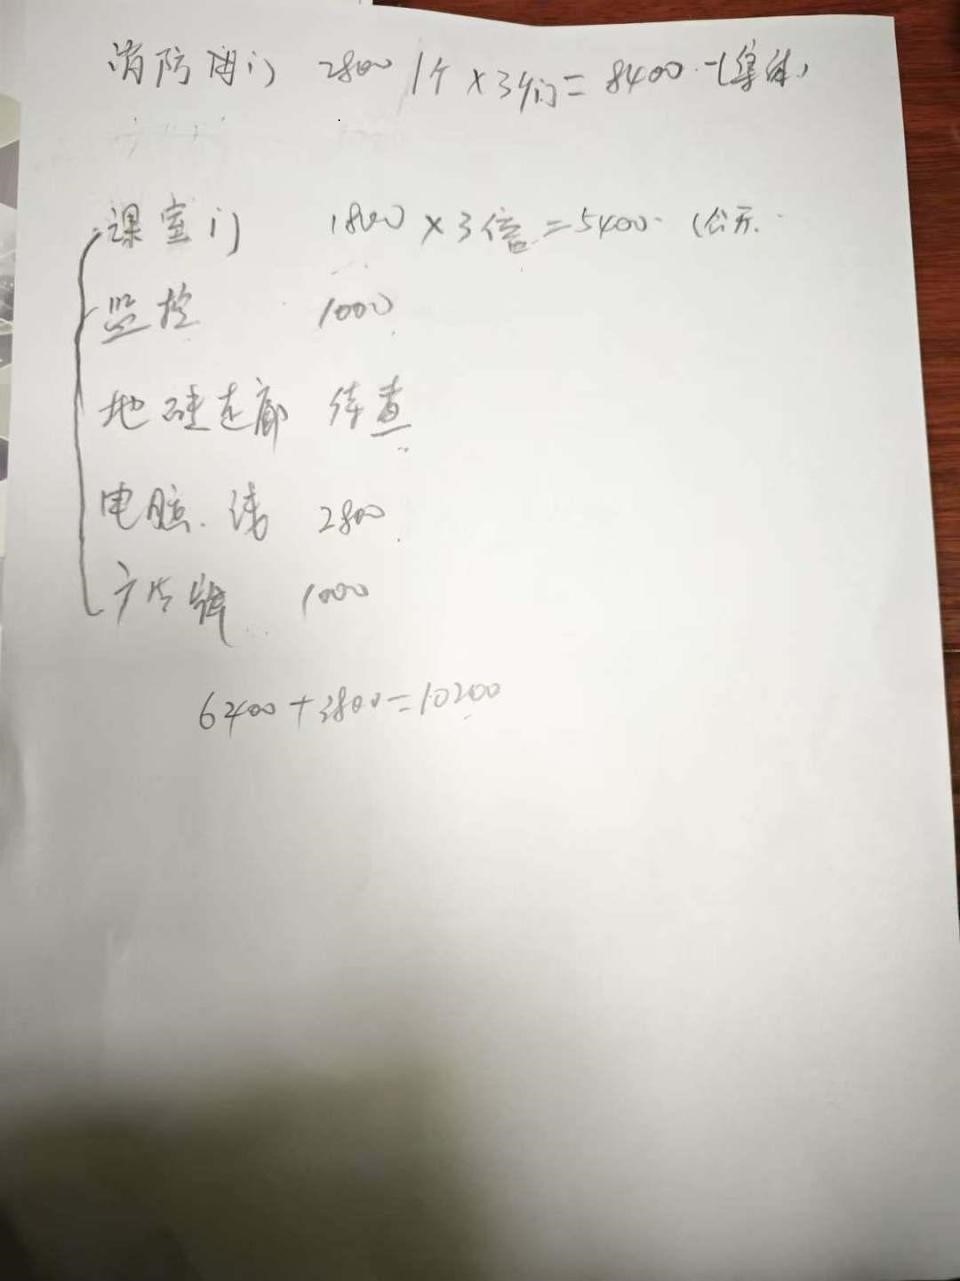 消防闸门 2800 1个×3个门=8400.-(集体)
课室门 1800×3倍=5400 (公开
监控 1000
地砖走廊 待查
电脑. 线 2800
1000
6400+3800=10200